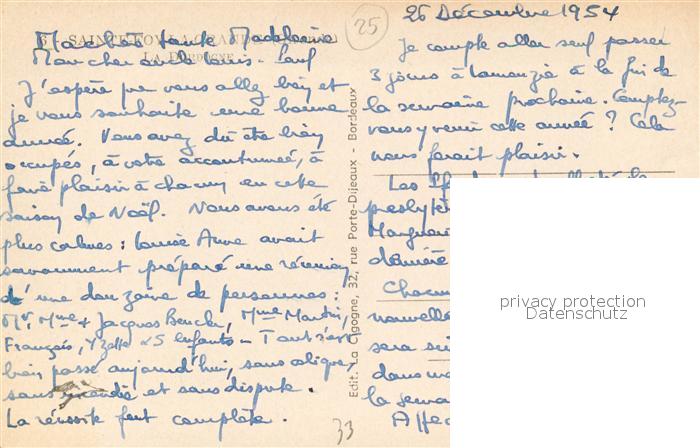 6 - SAINTE-FOY-LA-GRANDE
LA DORDOGNE
25
26 Décembre 1954
Ma chère tante Madeleine
Mon cher oncle Louis-Paul
J'espère que vous allez bien et
je vous souhaite une bonne
année. Vous avez dû être bien
occupés, à votre accoutumée, à
faire plaisir à chacun en cette
saison de Noël. Nous avons été
plus calmes : Louise Anne avait
savamment préparé une réunion
d'une douzaine de personnes :
Mr, Mme & Jacques, Mme Martin,
François, Yzette & 5 enfants - Tout s'est
bien passé aujourd'hui, sans
sans et sans dispute.
La réussite fut complète.
33
Edit. La Cigogne, 32, rue Porte-Dijeaux - Bordeaux
Je compte aller seul passer
3 jours à Lamonzie à la fin de
la semaine prochaine. Comptez-
vous y venir cette année ? Cela
nous ferait plaisir.
Les
presbytè
Margueri
dernière
Chacun
nouvelle
sera
dans
la
Affec
privacy protection
Datenschutz